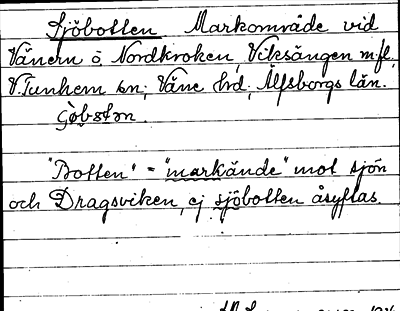 Sjöbotten Markområde vid
Vänern ö. Nordkroken, Viksängen m.fl.
V. Tunhem sn; Väne hd; Älfsborgs län.
"Botten" = "markände" mot sjön
och Dragsviken, ej sjöbotten åsyftas.